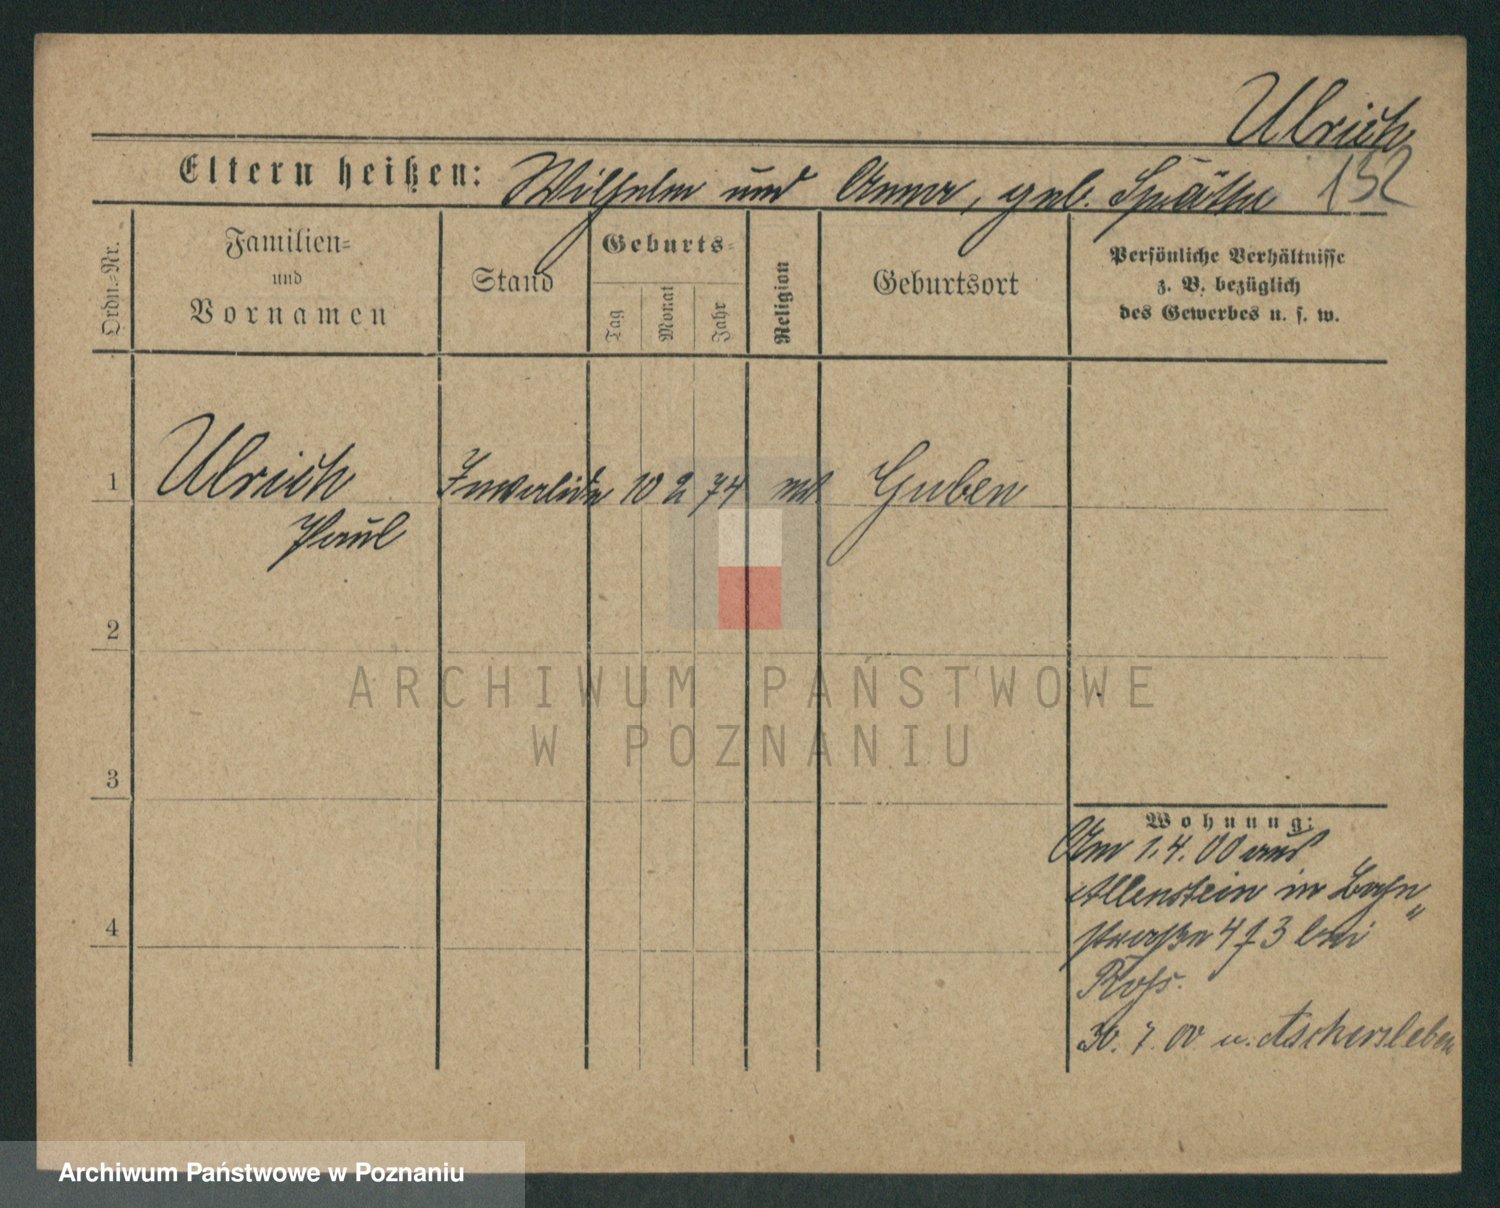 Ulrich
152
Eltern heißen: Wilhelm und Anna, geb. Späthe
Ordn.-Nr.
Familien-
und
Vornamen
Stand
Geburts-
Tag
Monat
Jahr
Religion
Geburtsort
Persönliche Verhältnisse
z. B. bezüglich
des Gewerbes u. s. w.
1 Ulrich Invalide 10 2 74 ev Guben
Paul
2
ARCHIWUM PAŃSTWOWE
W POZNANIU
3
Wohnung:
Am 1.4.00 aus
Allenstein in Bahn
4
straße 4 3 bei
30. 7. 00 n. Aschersleben
Archiwum Państwowe w Poznaniu